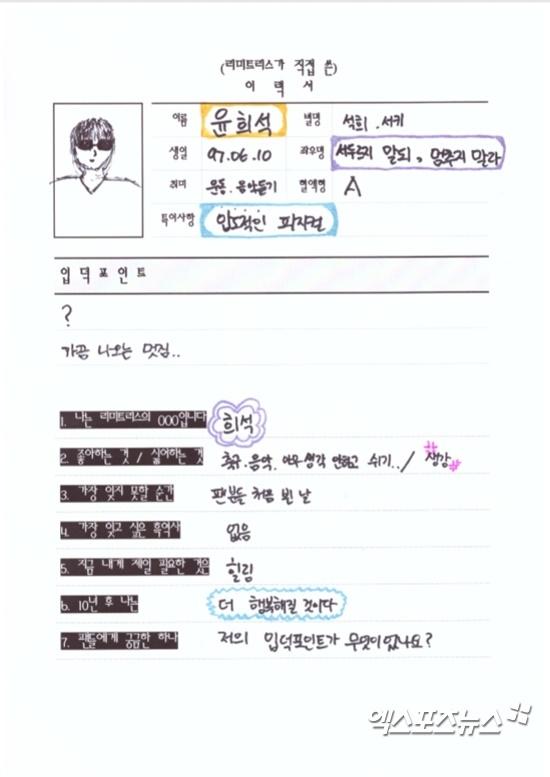 (리미트리스가 직접 쓴)
이 력 서
이름 윤희석 별명 석희. 서키
생일 97.06.10 좌우명 서두르지 말되, 멈추지 말라
취미 운동. 음악듣기 혈액형 A
특이사항 압도적인 피지컬
입 덕 포 인 트
?
가끔 나오는 멋짐..
1. 나는 리미트리스의 OOO입니다 희석
2. 좋아하는 것 / 싫어하는 것 축구. 음악. 아무생각 안하고 쉬기../ 생강
3. 가장 잊지 못할 순간 팬분들 처음 뵌 날
4. 가장 잊고 싶은 흑역사 없음
5. 지금 내게 제일 필요한 것은 힐링
6. 10년 후 나는 더 행복해질 것이다
7. 팬들에게 궁금한 하나 저의 입덕포인트가 무엇이었나요?
엑스포츠뉴스